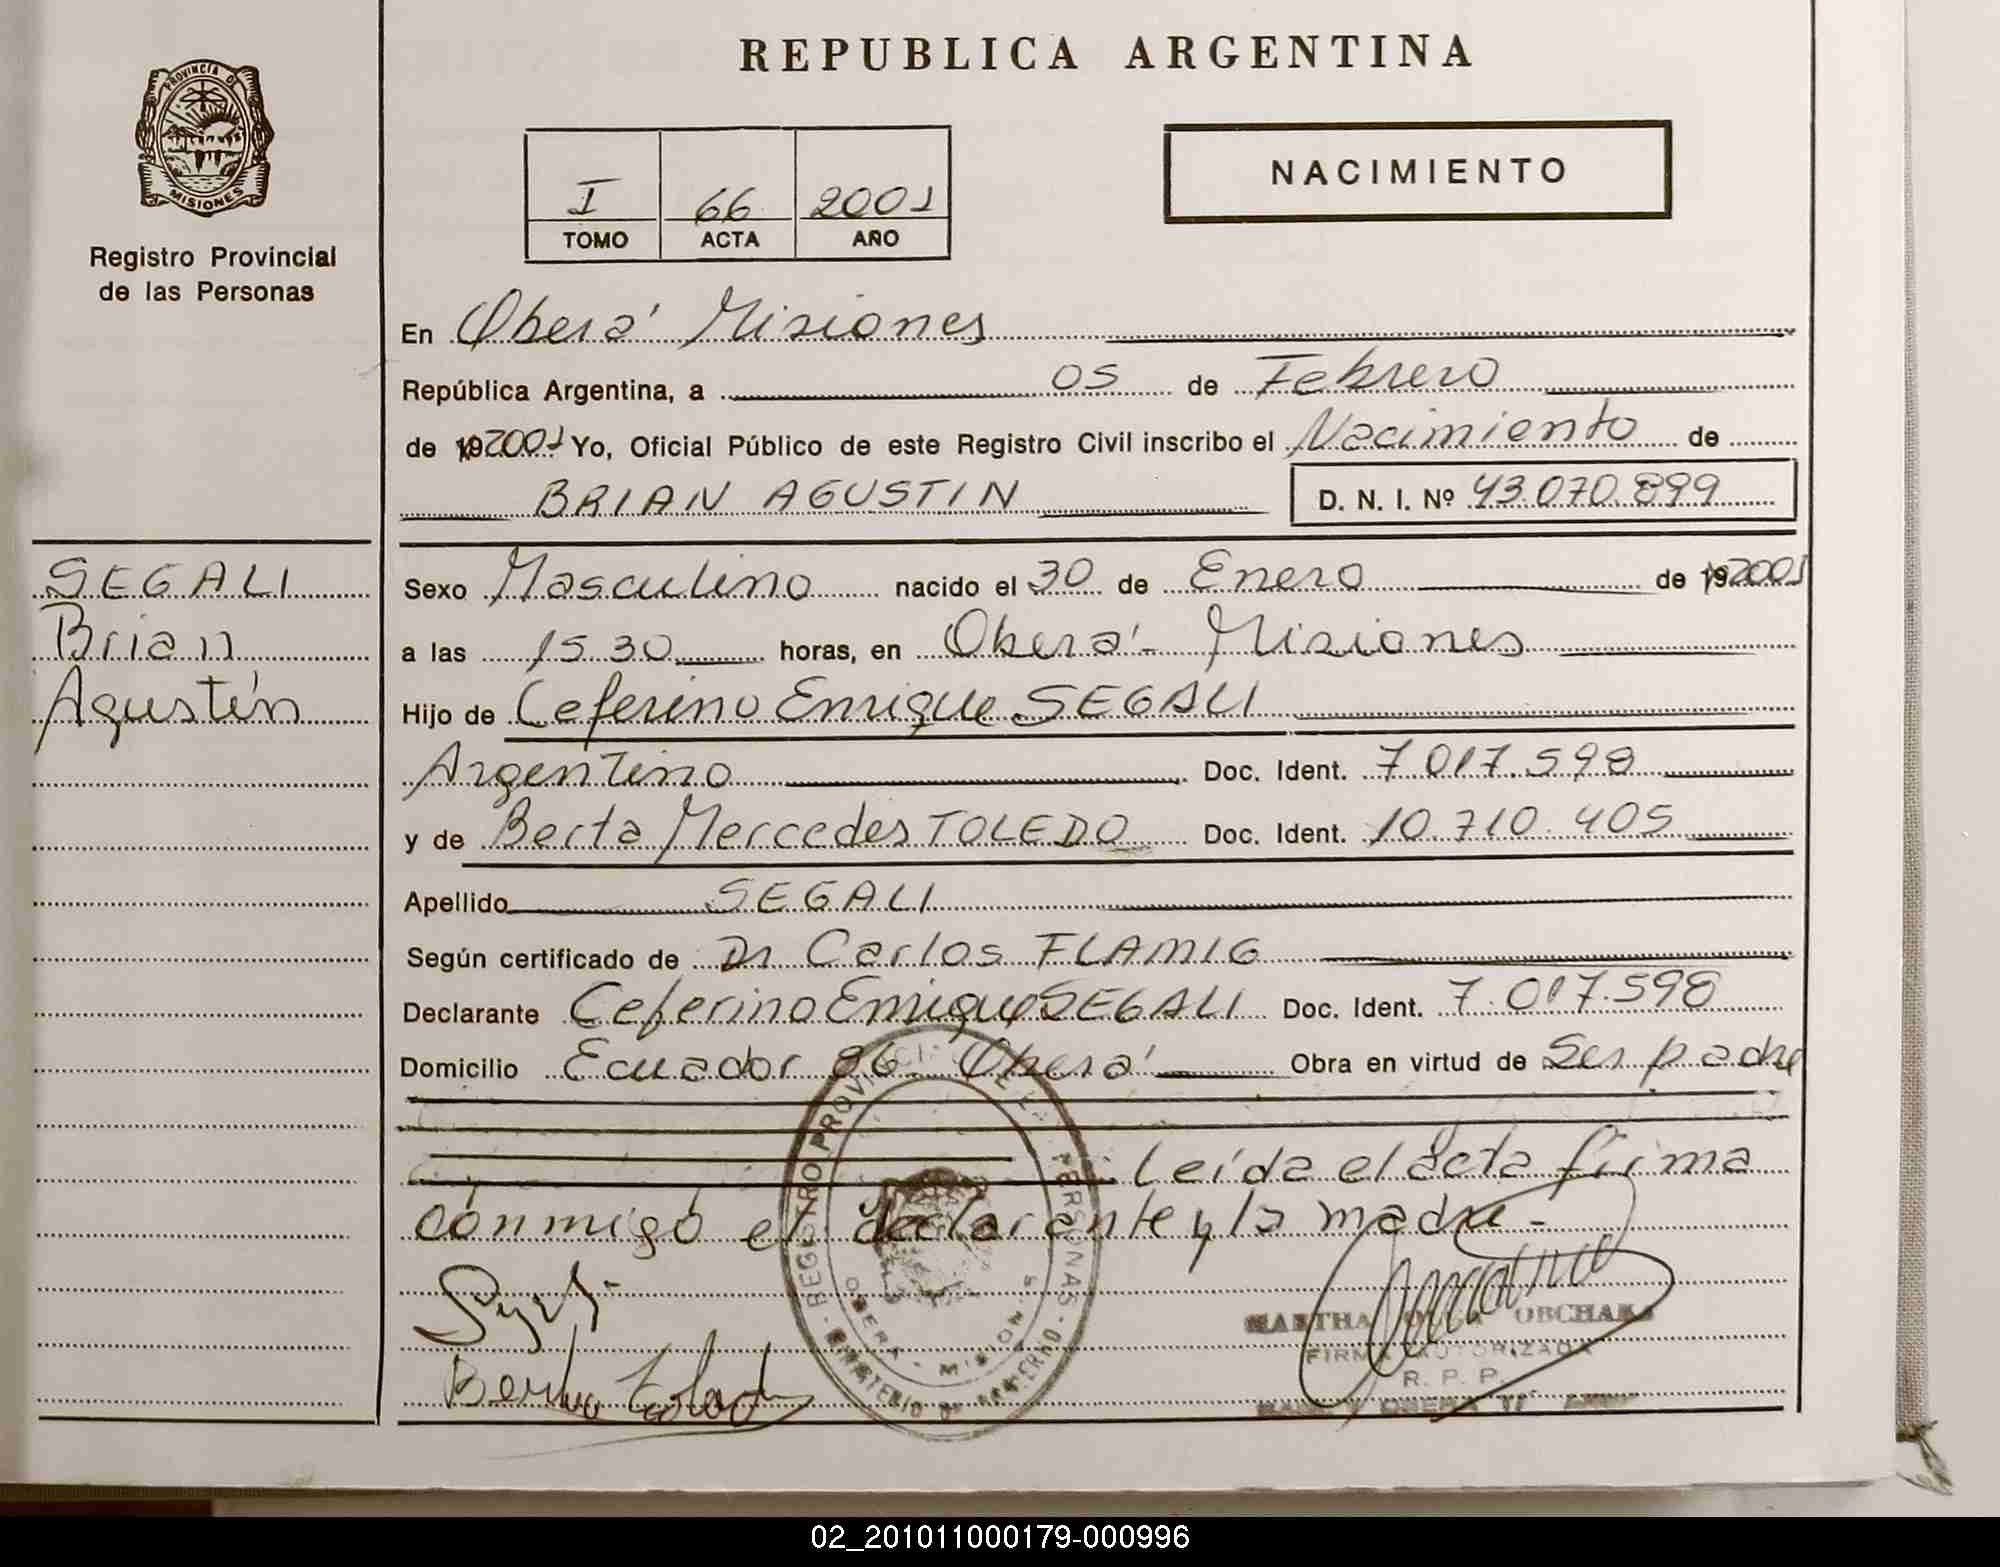 REPUBLICA ARGENTINA
PROVINCIA DE
MISIONES
Registro Provincial
de las Personas
NACIMIENTO
I 66 2001
TOMO ACTA AÑO
En Oberá Misiones
República Argentina, a 05 de Febrero
de 192001 Yo, Oficial Público de este Registro Civil inscribo el Nacimiento de
BRIAN AGUSTIN D. N. I. Nº 43.070.899
SEGALI
Brian
Agustín
Sexo Masculino nacido el 30 de Enero de 192001
a las 15.30 horas, en Oberá - Misiones
Hijo de Ceferino Enrique SEGALI
Argentino Doc. Ident. 7.017.598
y de Berta Mercedes TOLEDO Doc. Ident. 10.710.405
Apellido SEGALI
Según certificado de Dr Carlos FLAMIG
Declarante Ceferino Enrique SEGALI Doc. Ident. 7.017.598
Domicilio Ecuador 86 Oberá Obra en virtud de Ser padre
Leída el acta firma
conmigo el declarante y la madre.-
REGISTRO PROVINCIAL DE LAS PERSONAS
OBERA - MISIONES
MINISTERIO DE GOBIERNO
Berta Toledo
MARTHA OLGA
FIRMA AUTORIZADA
R. P. P.
02_201011000179-000996